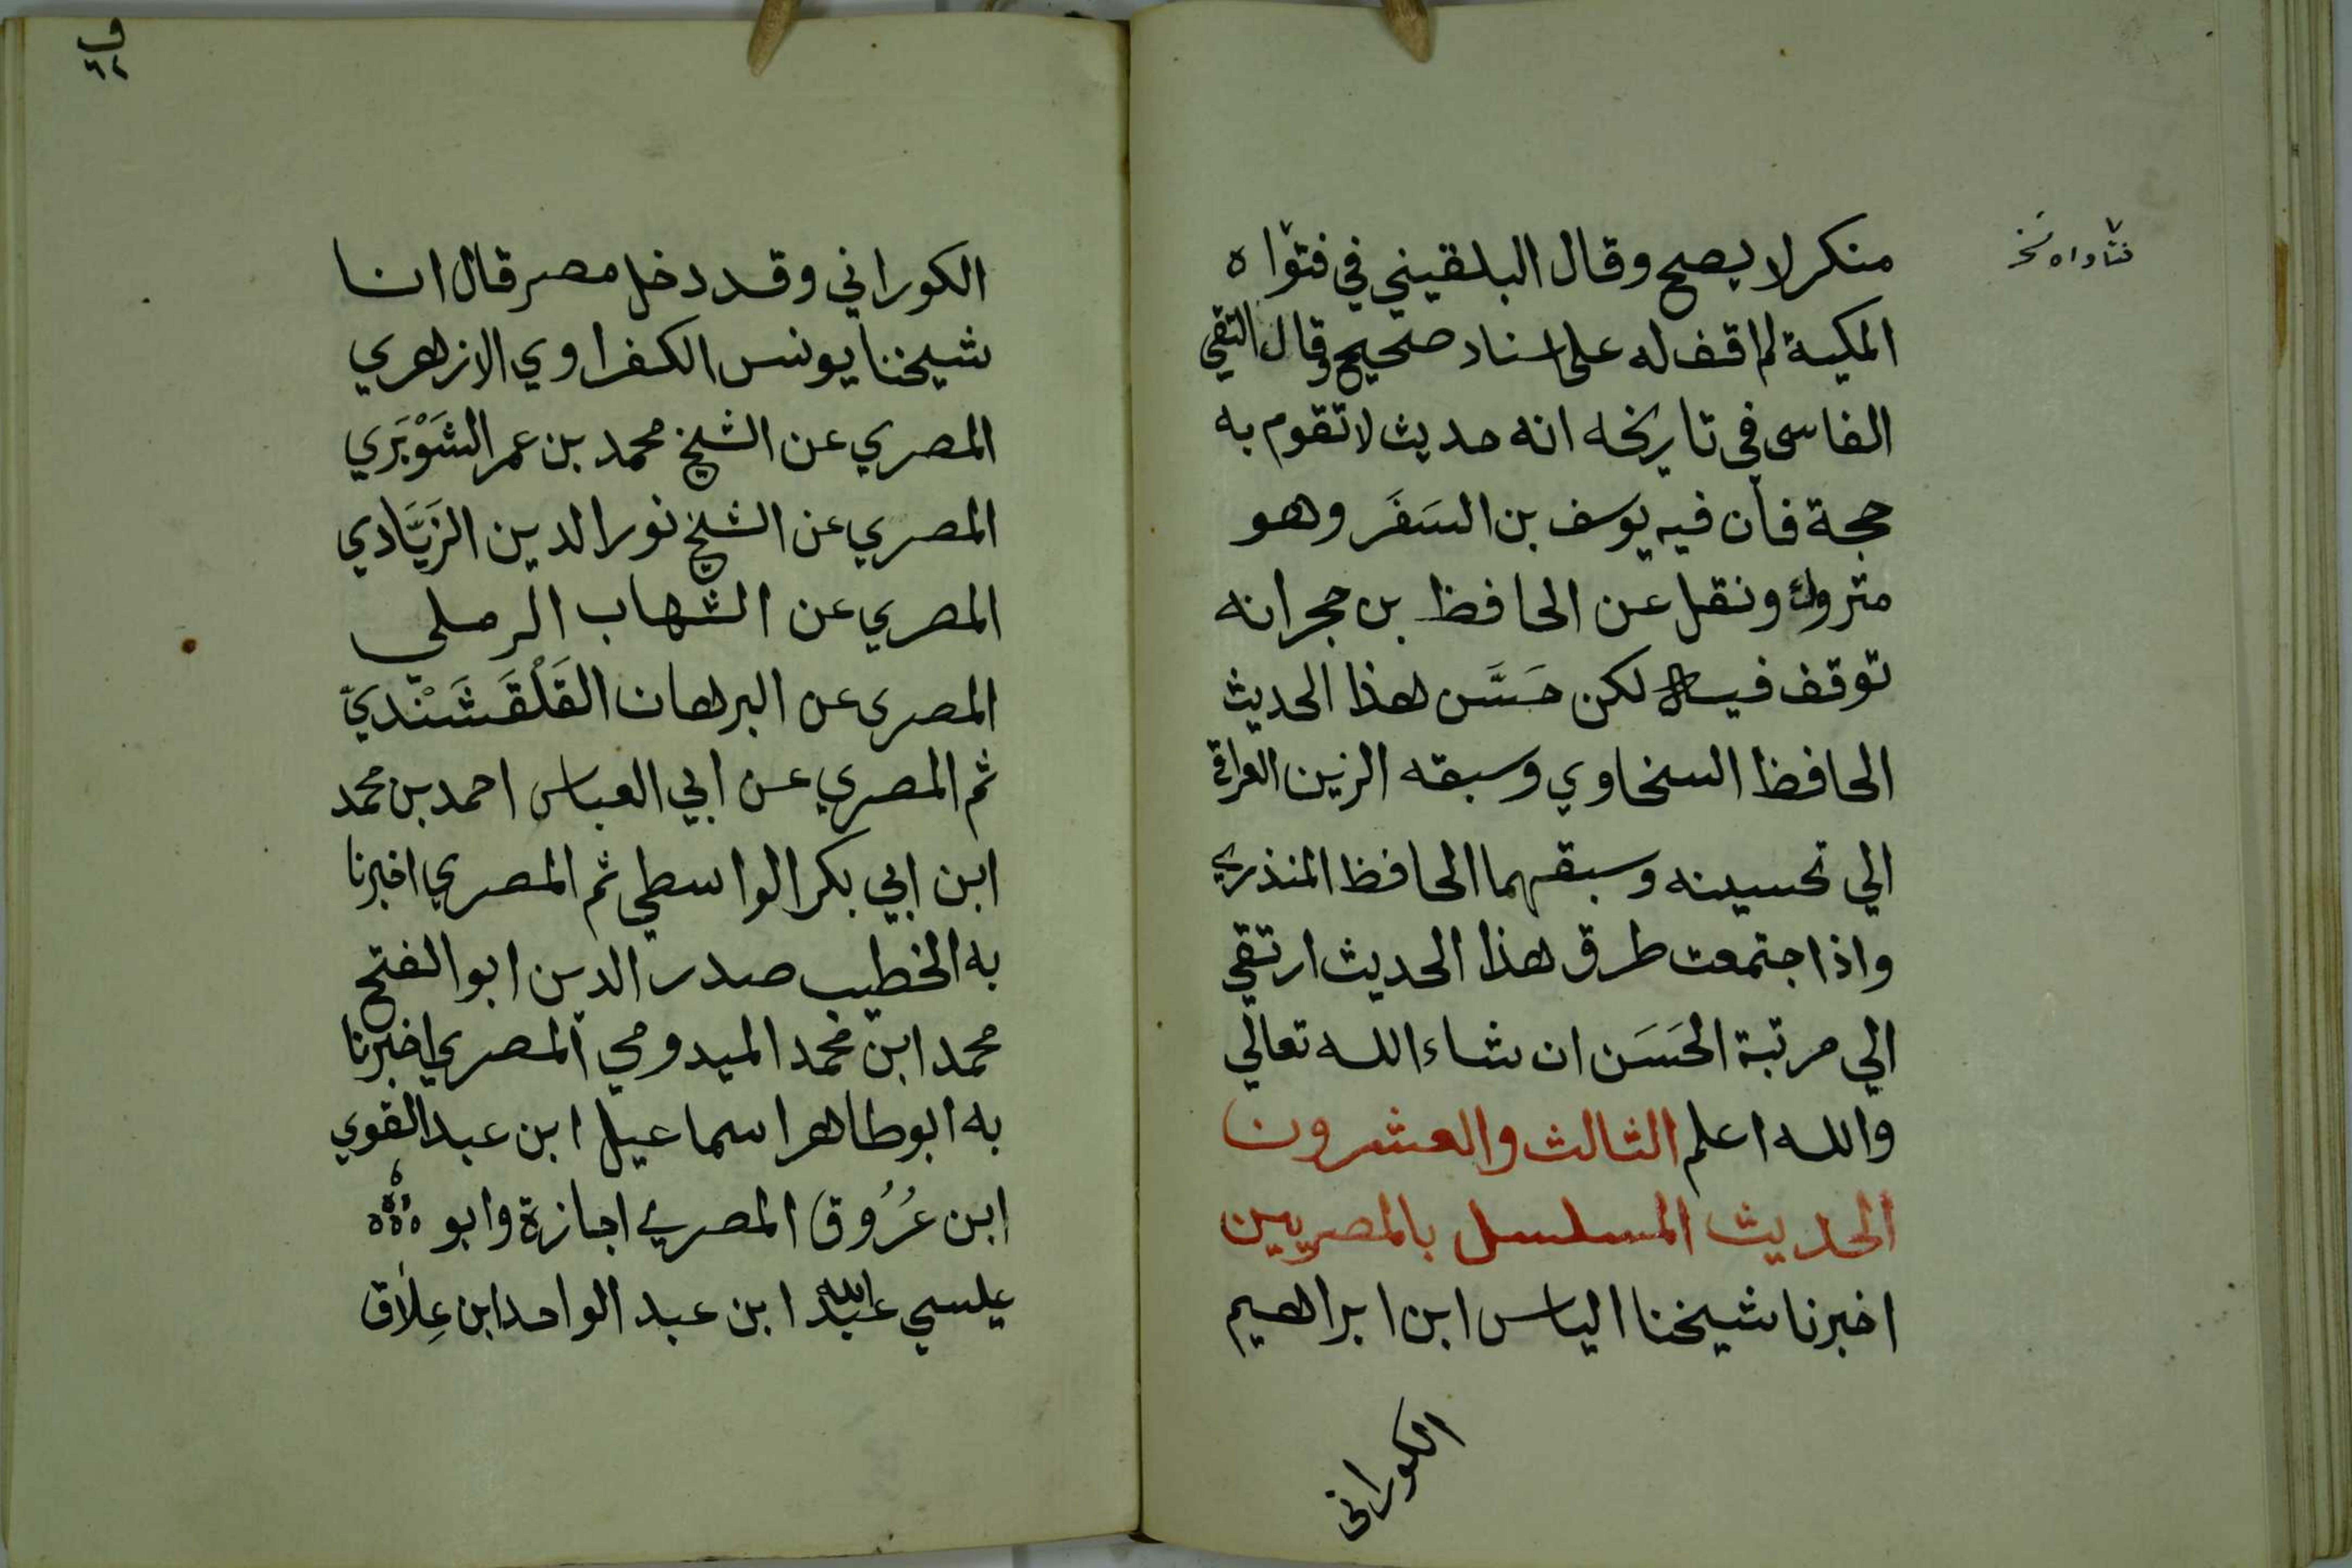 منكر لا يصح وقال البلقيني في فتواه
فتاواه نخ
المكية لم اقف له على اسناد صحيح وقال التقي
الفاسى في تاريخه انه حديث لا تقوم به
حجة فان فيه يوسف بن السَفَر وهو
متروك ونقل عن الحافظ بن حجر انه
توقف فيه لكن حَسَّن هذا الحديث
الحافظ السخاوي وسبقه الزين العراقي
الي تحسينه وسبقهما الحافظ المنذري
واذا جتمعت طرق هذا الحديث ارتقي
الي مرتبة الحَسَن ان شاء الله تعالي
والله اعلم الثالث والعشرون
الحديث المسلسل بالمصريين
اخبرنا شيخنا الياس ابن ابراهيم
الكورانى
الكوراني وقد دخل مصر قال انا
شيخنا يونس الكفراوي الازهري
المصري عن الشيخ محمد بن عمر الشَوْبَري
المصري عن الشيخ نور الدين الزَيَّادي
المصري عن الشهاب الرملي
المصرى عن البرهان القَلْقَشَنْديّ
ثم المصري عن ابي العباس احمد بن محمد
ابن ابي بكر الواسطي ثم المصري اخبرنا
به الخطيب صدر الدين ابو الفتح
محمد ابن محمد الميدومي المصري اخبرنا
به ابو طاهر اسماعيل ابن عبد القوي
ابن عُرُوق المصري اجازة وابو
عيسي عبد الله ابن عبد الواحد ابن عِلاق